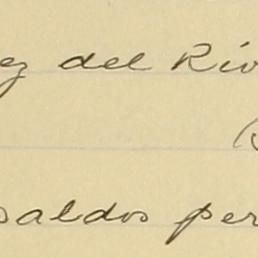 ez del Rio
(
saldos per